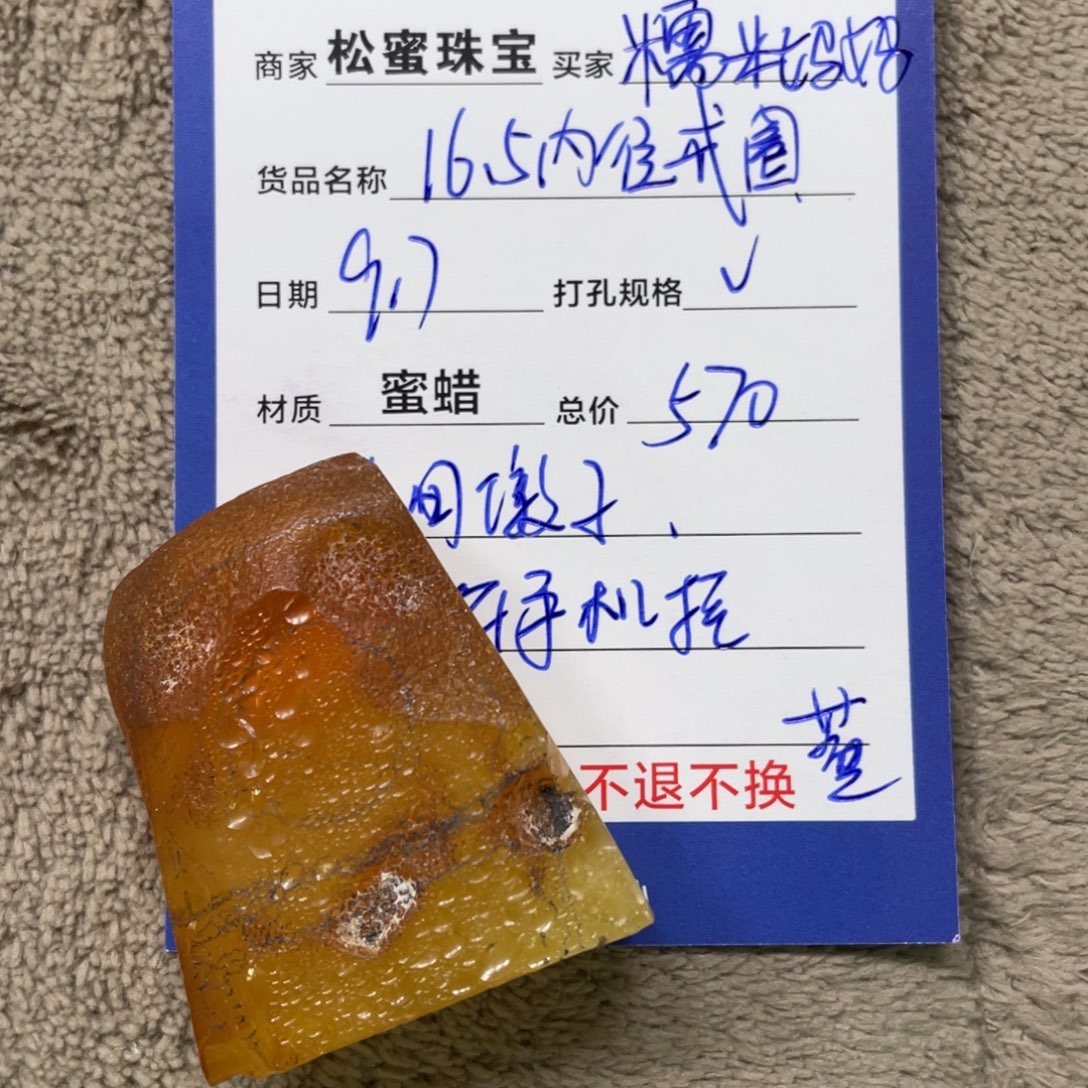 商家 松蜜珠宝 买家 糯米妈妈
货品名称 16.5内径戒圈
日期 9.7 打孔规格 √
材质 蜜蜡 总价 570
墩子、
手机
不退不换